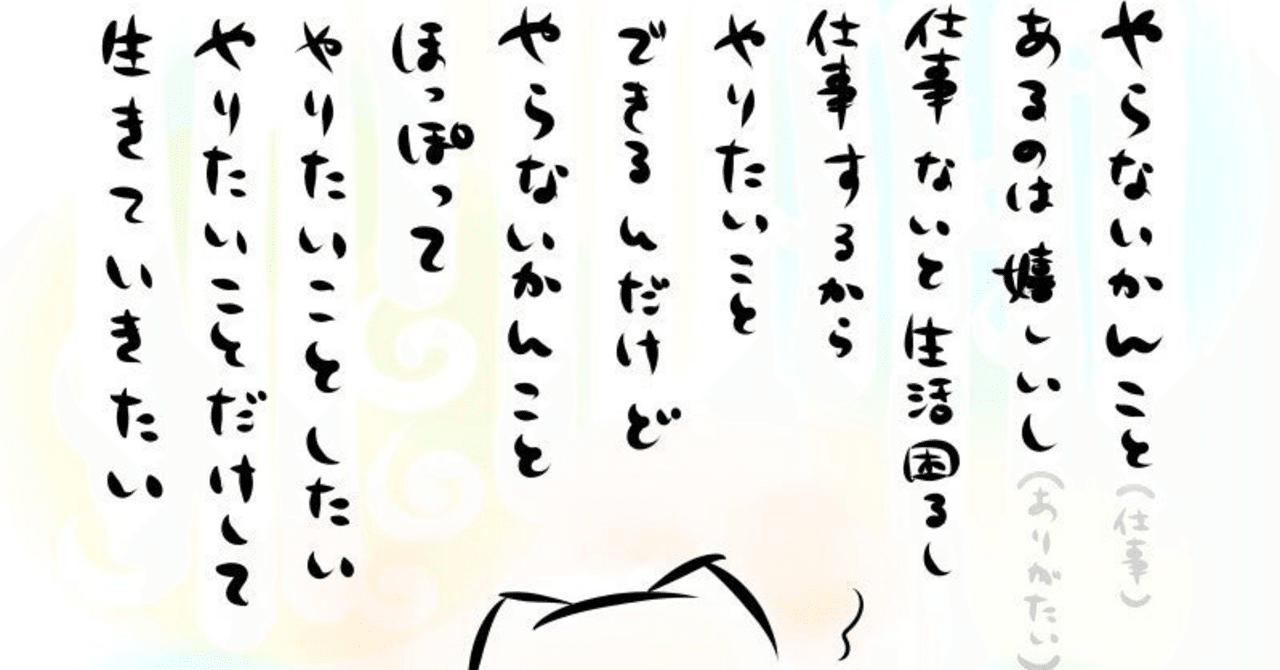 やらないかんこと(仕事)
あるのは嬉しいし(ありがたい)
仕事ないと生活困るし
仕事するから
やりたいこと
できるんだけど
やらないかんこと
ほっぽって
やりたいことしたい
やりたいことだけして
生きていきたい